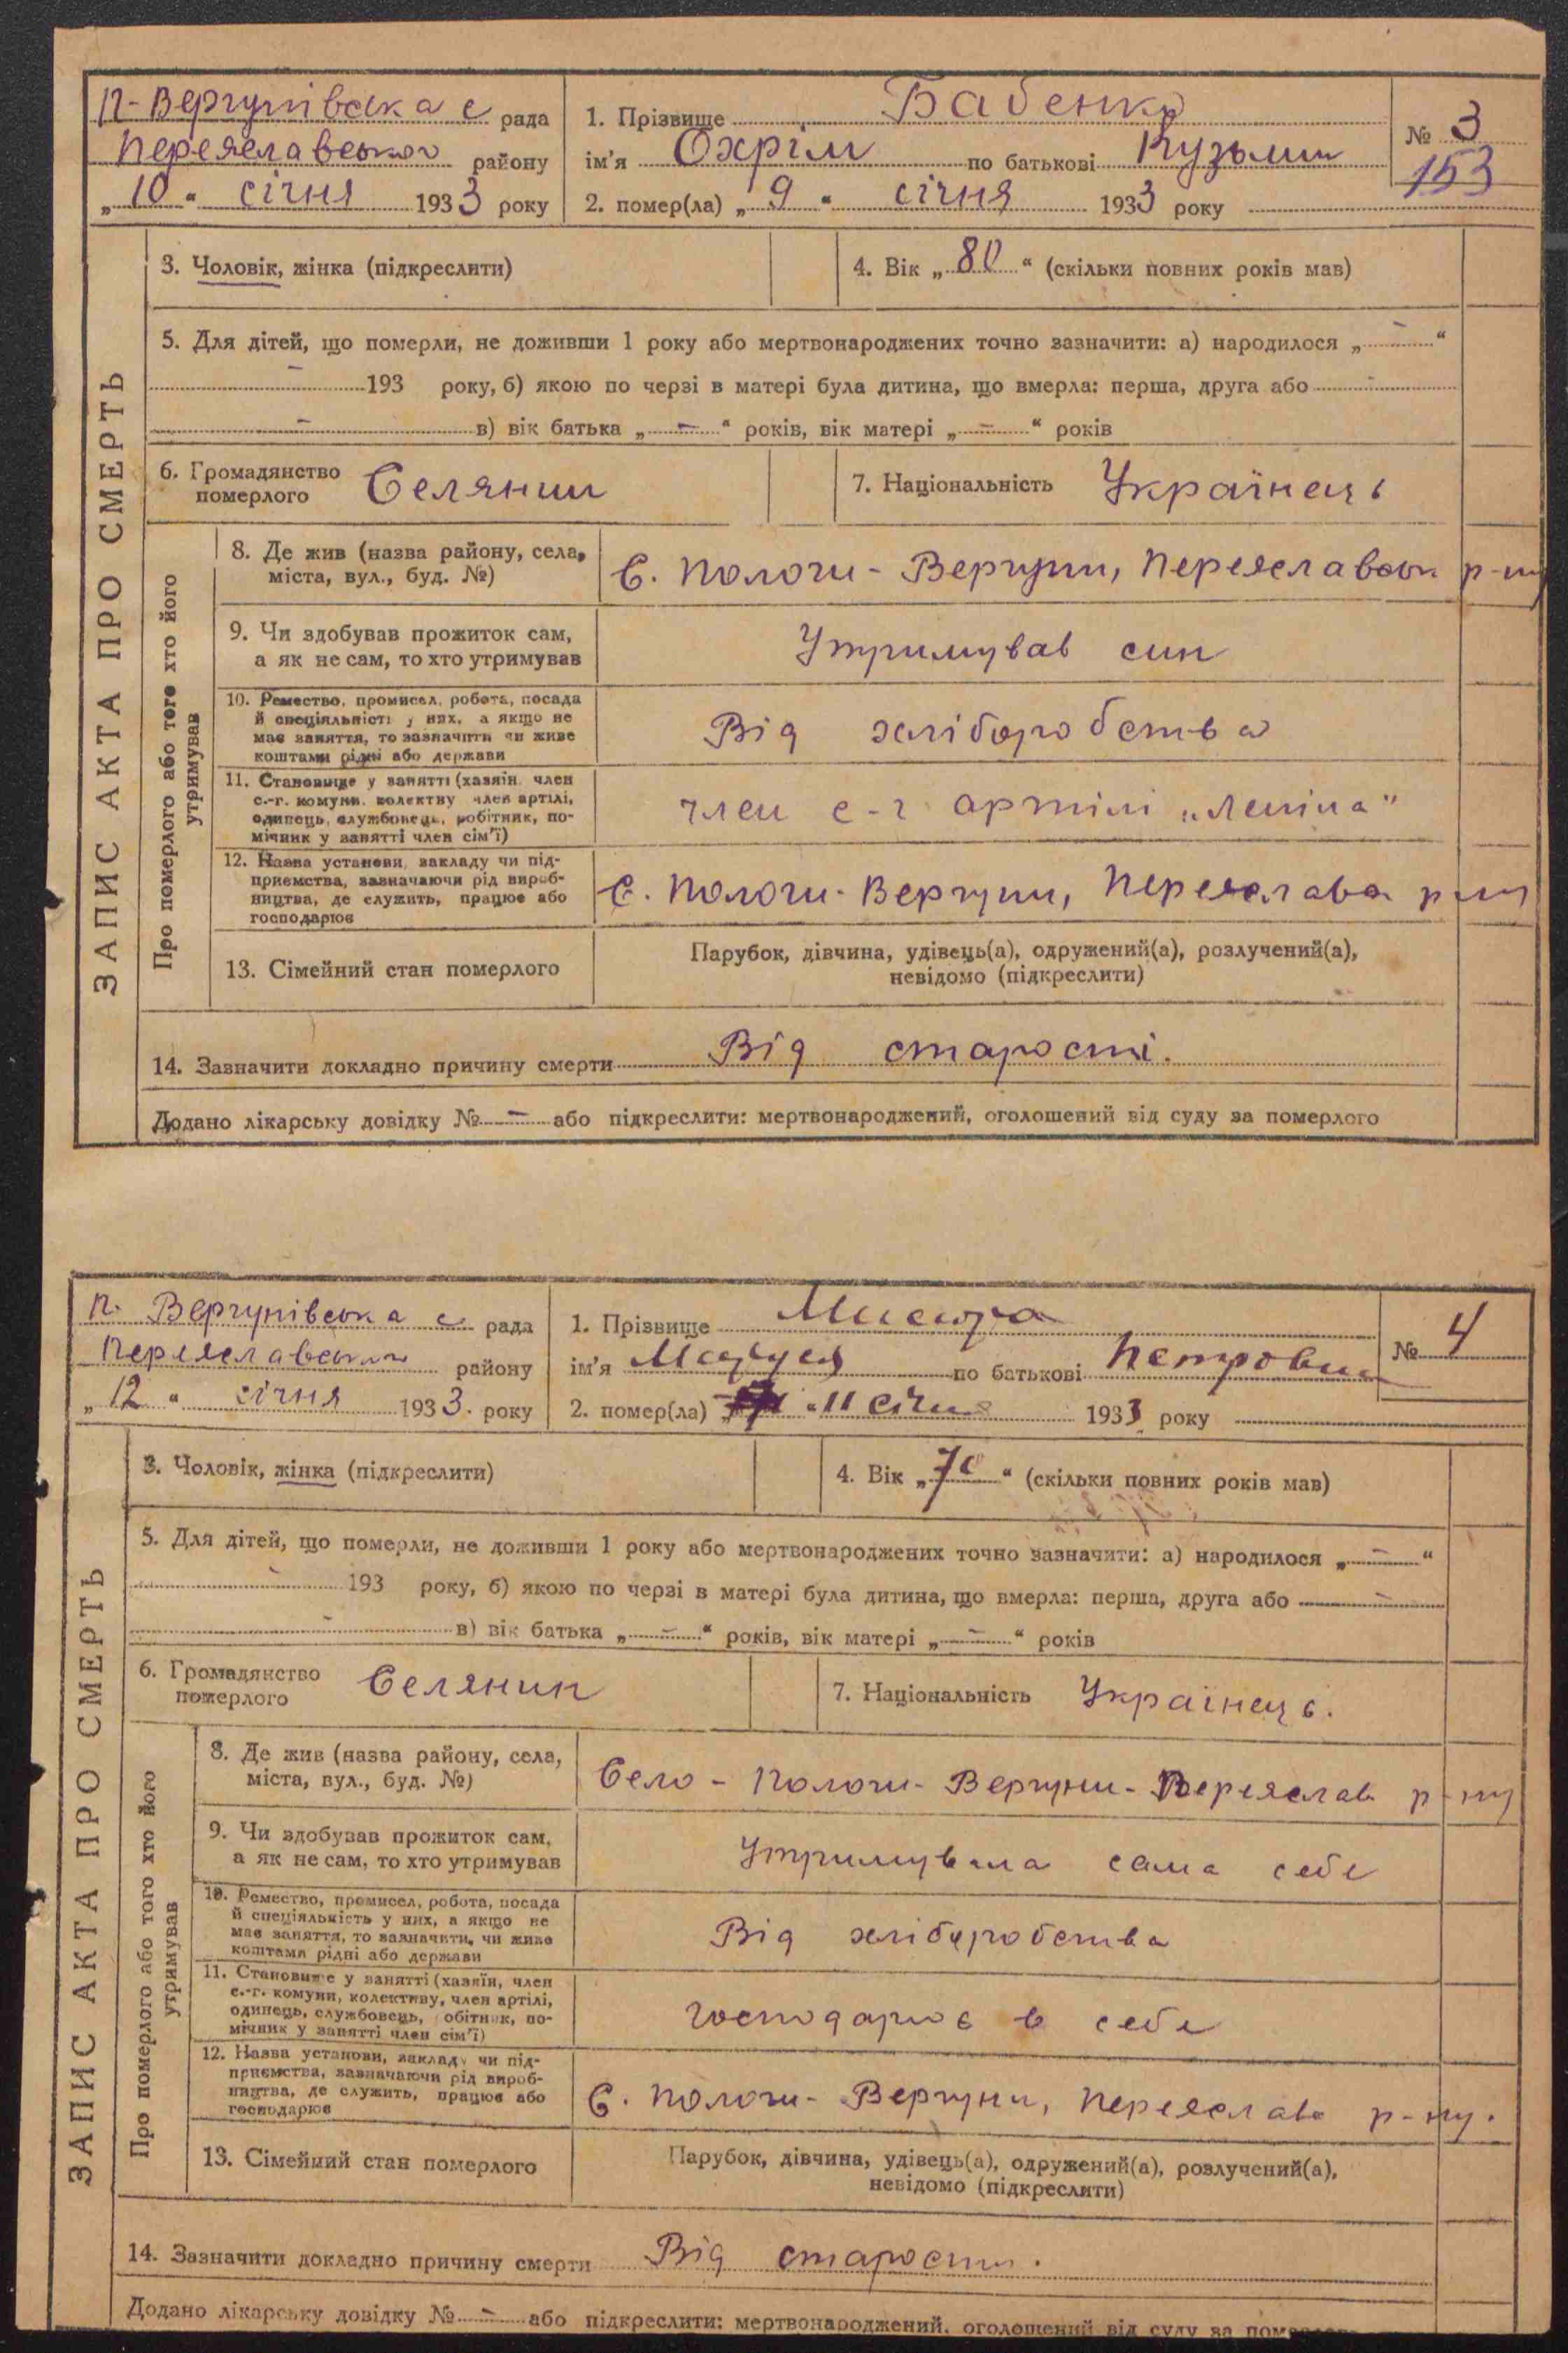 П-Вергунівська с рада
Переяславського району
„10“ січня 1933 року
1. Прізвище Бабенко
ім’я Охрім по батькові Кузьмич
2. помер(ла) „9“ січня 1933 року
№ 3
153
ЗАПИС АКТА ПРО СМЕРТЬ
3. Чоловік, жінка (підкреслити)
4. Вік „80“ (скільки повних років мав)
5. Для дітей, що померли, не доживши 1 року або мертвонароджених точно зазначити: а) народилося „–“
– 193 року, б) якою по черзі в матері була дитина, що вмерла: перша, друга або –
– в) вік батька „–“ років, вік матері „–“ років
6. Громадянство
померлого
Селянин
7. Національність Українець
Про померлого або того хто його
утримував
8. Де жив (назва району, села,
міста, вул., буд. №)
С. Пологи-Вергуни, Переяславськ р-ну
9. Чи здобував прожиток сам,
а як не сам, то хто утримував
Утримував син
10. Ремество, промисел, робота, посада
й спеціяльність у них, а якщо не
має заняття, то зазначити чи живе
коштами рідні або держави
Від хліборобства
11. Становище у занятті (хазяїн, член
с.-г. комуни, колективу член артілі,
одинець, службовець, робітник, по-
мічник у занятті член сім’ї)
член с-г артілі „Леніна"
12. Назва установи, закладу чи під-
приємства, зазначаючи рід вироб-
ництва, де служить, працює або
господарює
С. Пологи-Вергуни, Переяслав р-ну
13. Сімейний стан померлого
Парубок, дівчина, удівець(а), одружений(а), розлучений(а),
невідомо (підкреслити)
14. Зазначити докладно причину смерти Від старості.
Додано лікарську довідку № – або підкреслити: мертвонароджений, оголошений від суду за померлого
П. Вергунівська с рада
Переяславського району
„12“ січня 1933. року
1. Прізвище
ім’я по батькові Петровна
2. помер(ла) „11 січня 1933 року
№ 4
ЗАПИС АКТА ПРО СМЕРТЬ
3. Чоловік, жінка (підкреслити)
4. Вік „70“ (скільки повних років мав)
5. Для дітей, що померли, не доживши 1 року або мертвонароджених точно зазначити: а) народилося „–“
– 193 року, б) якою по черзі в матері була дитина, що вмерла: перша, друга або –
– в) вік батька „–“ років, вік матері „–“ років
6. Громадянство
померлого
Селянин
7. Національність Українець.
Про померлого або того хто його
утримував
8. Де жив (назва району, села,
міста, вул., буд. №)
Село - Пологи-Вергуни-Переяслав р-ну
9. Чи здобував прожиток сам,
а як не сам, то хто утримував
Утримувала сама себе
10. Ремество, промисел, робота, посада
й спеціяльність у них, а якщо не
має заняття, то зазначити, чи живе
коштами рідні або держави
Від хліборобства
11. Становище у занятті (хазяїн, член
с.-г. комуни, колективу, член артілі,
одинець, службовець, робітник, по-
мічник у занятті член сім’ї)
Господарює в себе
12. Назва установи, закладу чи під-
приємства, зазначаючи рід вироб-
ництва, де служить, працює або
господарює
С. Пологи-Вергуни, Переяслав р-ну.
13. Сімейний стан померлого
Парубок, дівчина, удівець(а), одружений(а), розлучений(а),
невідомо (підкреслити)
14. Зазначити докладно причину смерти Від старости.
Додано лікарську довідку № – або підкреслити: мертвонароджений, оголошений від суду за